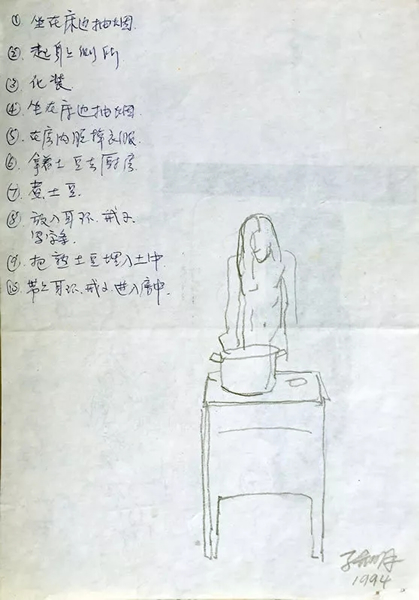 ① 坐在床边抽烟.
② 起身上厕所
③ 化装
④ 坐在床边抽烟
⑤ 在房内脱掉衣服.
⑥ 拿着土豆去厨房
⑦ 煮土豆.
⑧ 放入耳环、戒子
写字条.
⑨ 把熟土豆埋入土中
⑩ 带上耳环、戒子进入房中.
1994